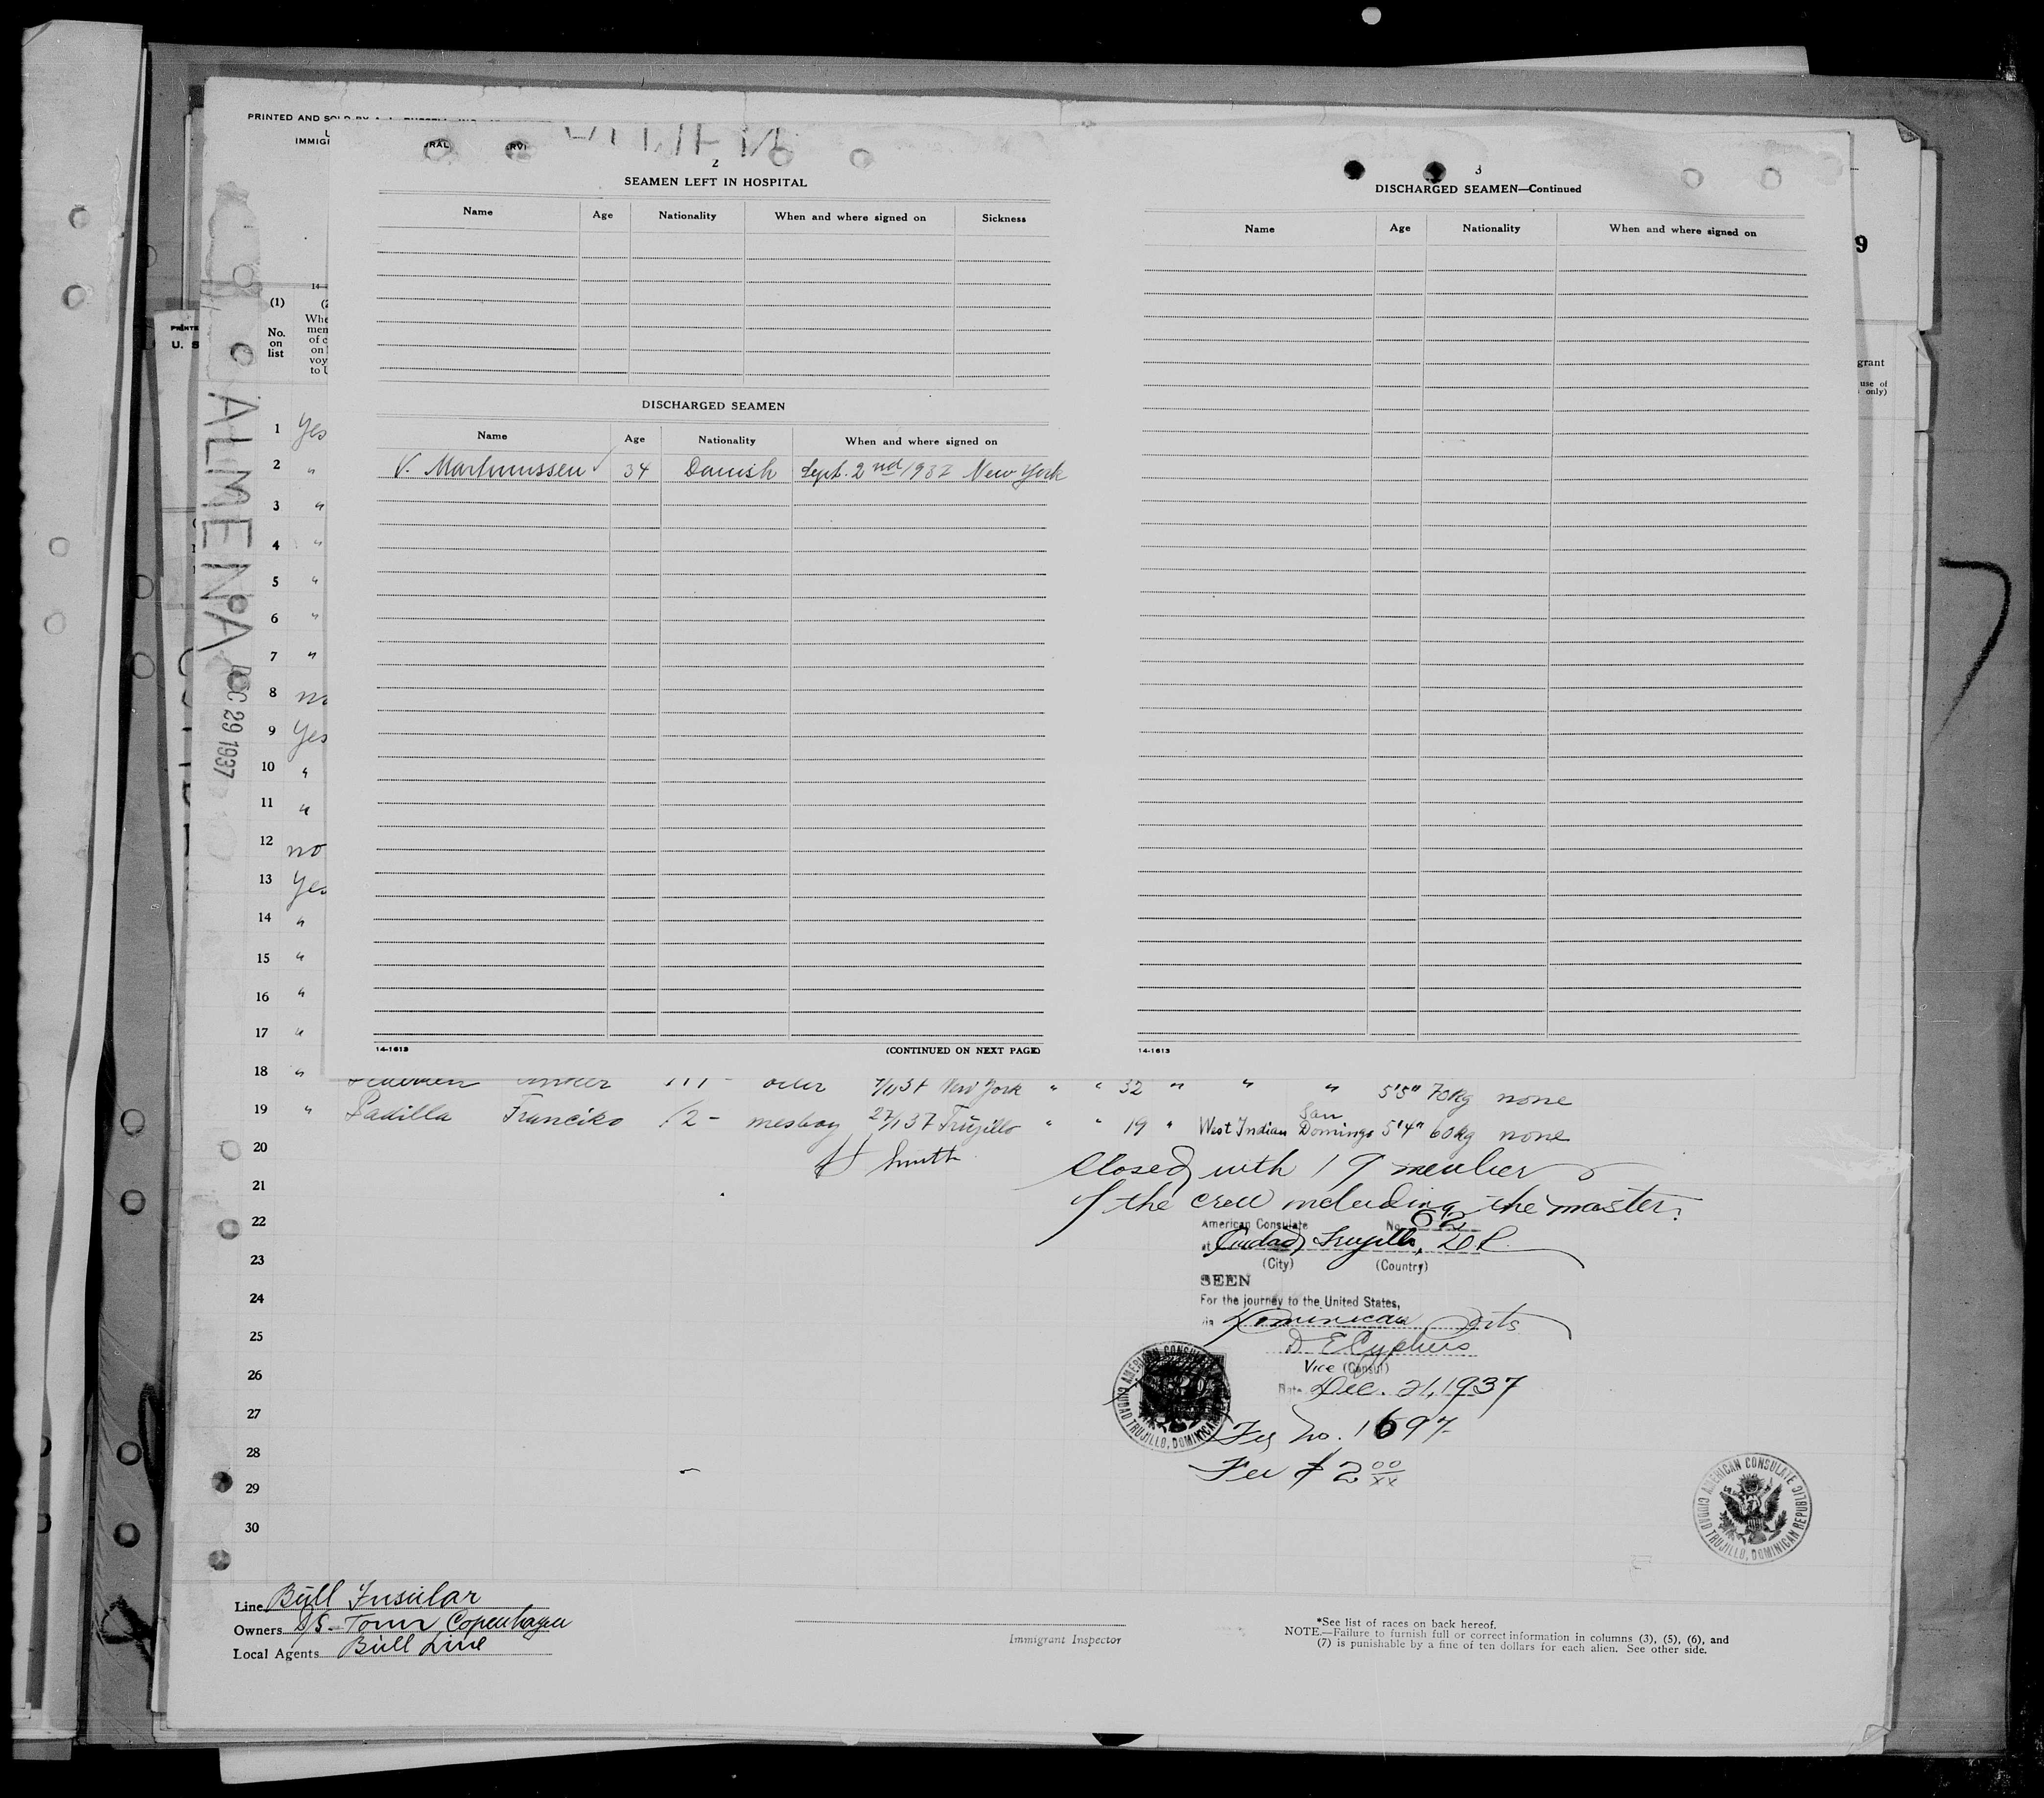 PRINTED AND SOLD BY
IMMIGI
RAL
RVI
2
SEAMEN LEFT IN HOSPITAL
Name Age Nationality When and where signed on Sickness
DISCHARGED SEAMEN
Name Age Nationality When and where signed on
V. Marhmussen 34 Danish Sept. 2nd 1937 New York
14-1613 (CONTINUED ON NEXT PAGE)
3
DISCHARGED SEAMEN—Continued
Name Age Nationality When and where signed on
14-1613
9
grant
use of
only)
PRINTE
U. S
ALMENA
DEC 29 1937
(1) (2
No. on list
Whe
men
of c
on
voy
to U
1 Yes
2 "
3 "
4 "
5 "
6 "
7 "
8 no
9 Yes
10 "
11 "
12 no
13 Yes
14 "
15 "
16 "
17 "
18 " New York " " 32 " " " 5'5" 70kg none
19 " Padilla Francisko 12 - mesboy 27/1 37 Trujillo " " 19 " West Indian San Domingo 5'4" 60kg none
20 Smith
closed with 19 members
21
of the crew including the master.
22
American Consulate No. 62
at Ciudad Trujillo, D.R.
23
(City) (Country)
SEEN
24
For the journey to the United States,
via Dominican Ports
25
D. E. Cyphers
Vice (Consul)
26
Date Dec. 21, 1937
27
Fee No. 1697
28
Fee $ 2 00/xx
29
30
AMERICAN CONSULATE
CIUDAD TRUJILLO, DOMINICAN
AMERICAN CONSULATE
CIUDAD TRUJILLO, DOMINICAN REPUBLIC
Line Bull Insular
Owners D/S Torm Copenhagen
Local Agents Bull Line
Immigrant Inspector
*See list of races on back hereof.
NOTE.—Failure to furnish full or correct information in columns (3), (5), (6), and
(7) is punishable by a fine of ten dollars for each alien. See other side.